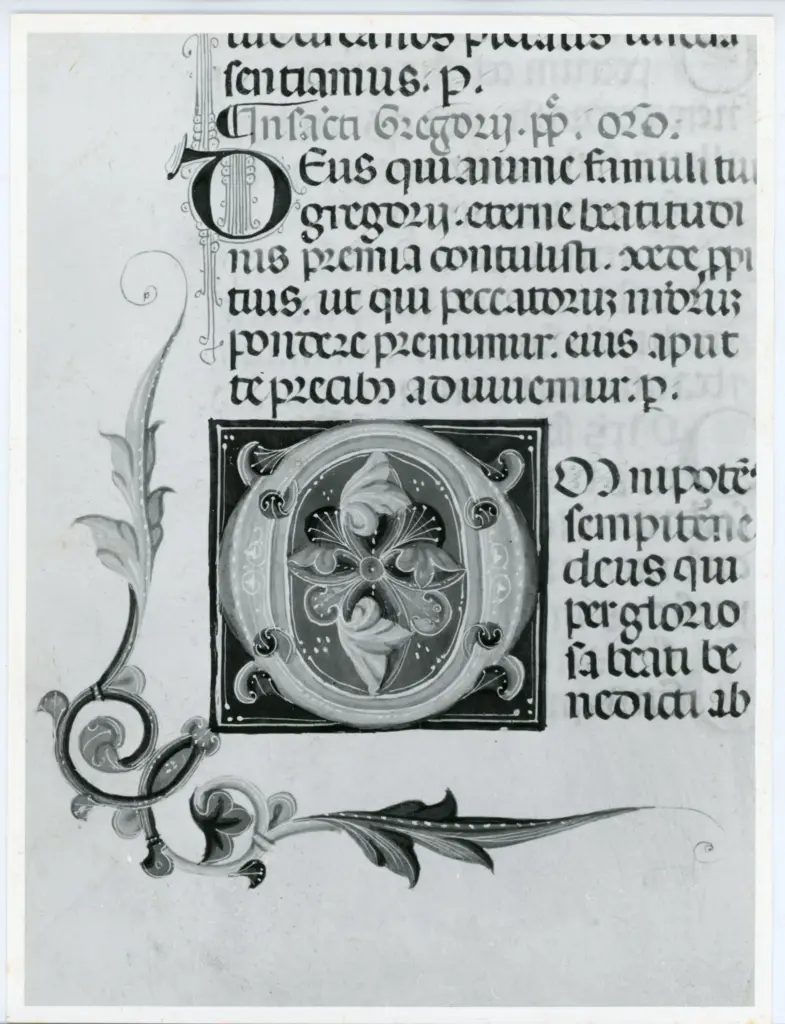 sentiamus. p.
In sācti Gregorij. pp̄. oro.
DEus qui anime famuli tui
gregorij. eterne beatitudi
nis premia contulisti. ꝓpi
tius. ut qui peccatoruꝫ nr̄oruꝫ
pondere premimur. eius aput
te precibꝫ adiuuemur. p.
OMnipotēs
sempiterne
deus qui
per glorio
sa beati be
nedicti ab